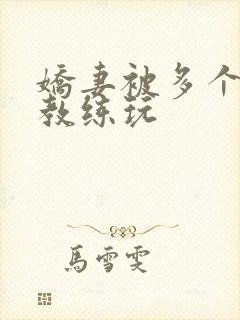 嬌妻被多个
教练玩
馬雪雯